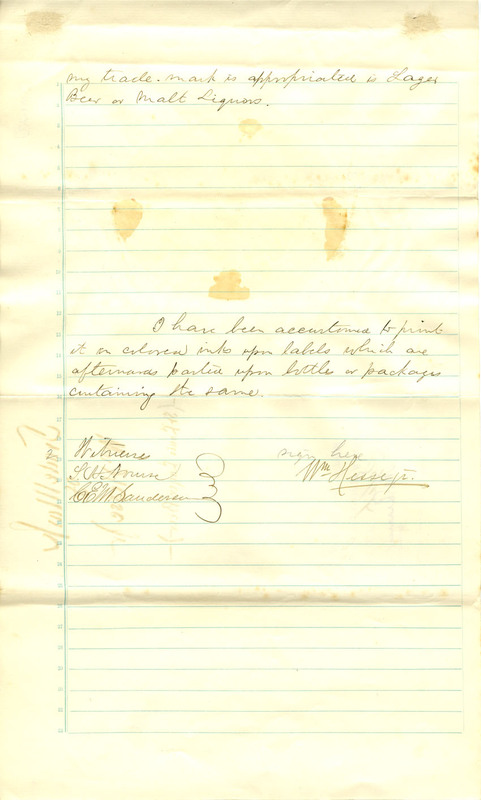 my trade-mark is appropriated is Lager
Beer or Malt Liquors.
I have been accustomed to print
it in colored inks upon labels which are
afterwards pasted upon bottles or packages
containing the same.
2 Witnesses
sign here
S. H.
Wm Hesse Jr.
C. E. W. Sanderson